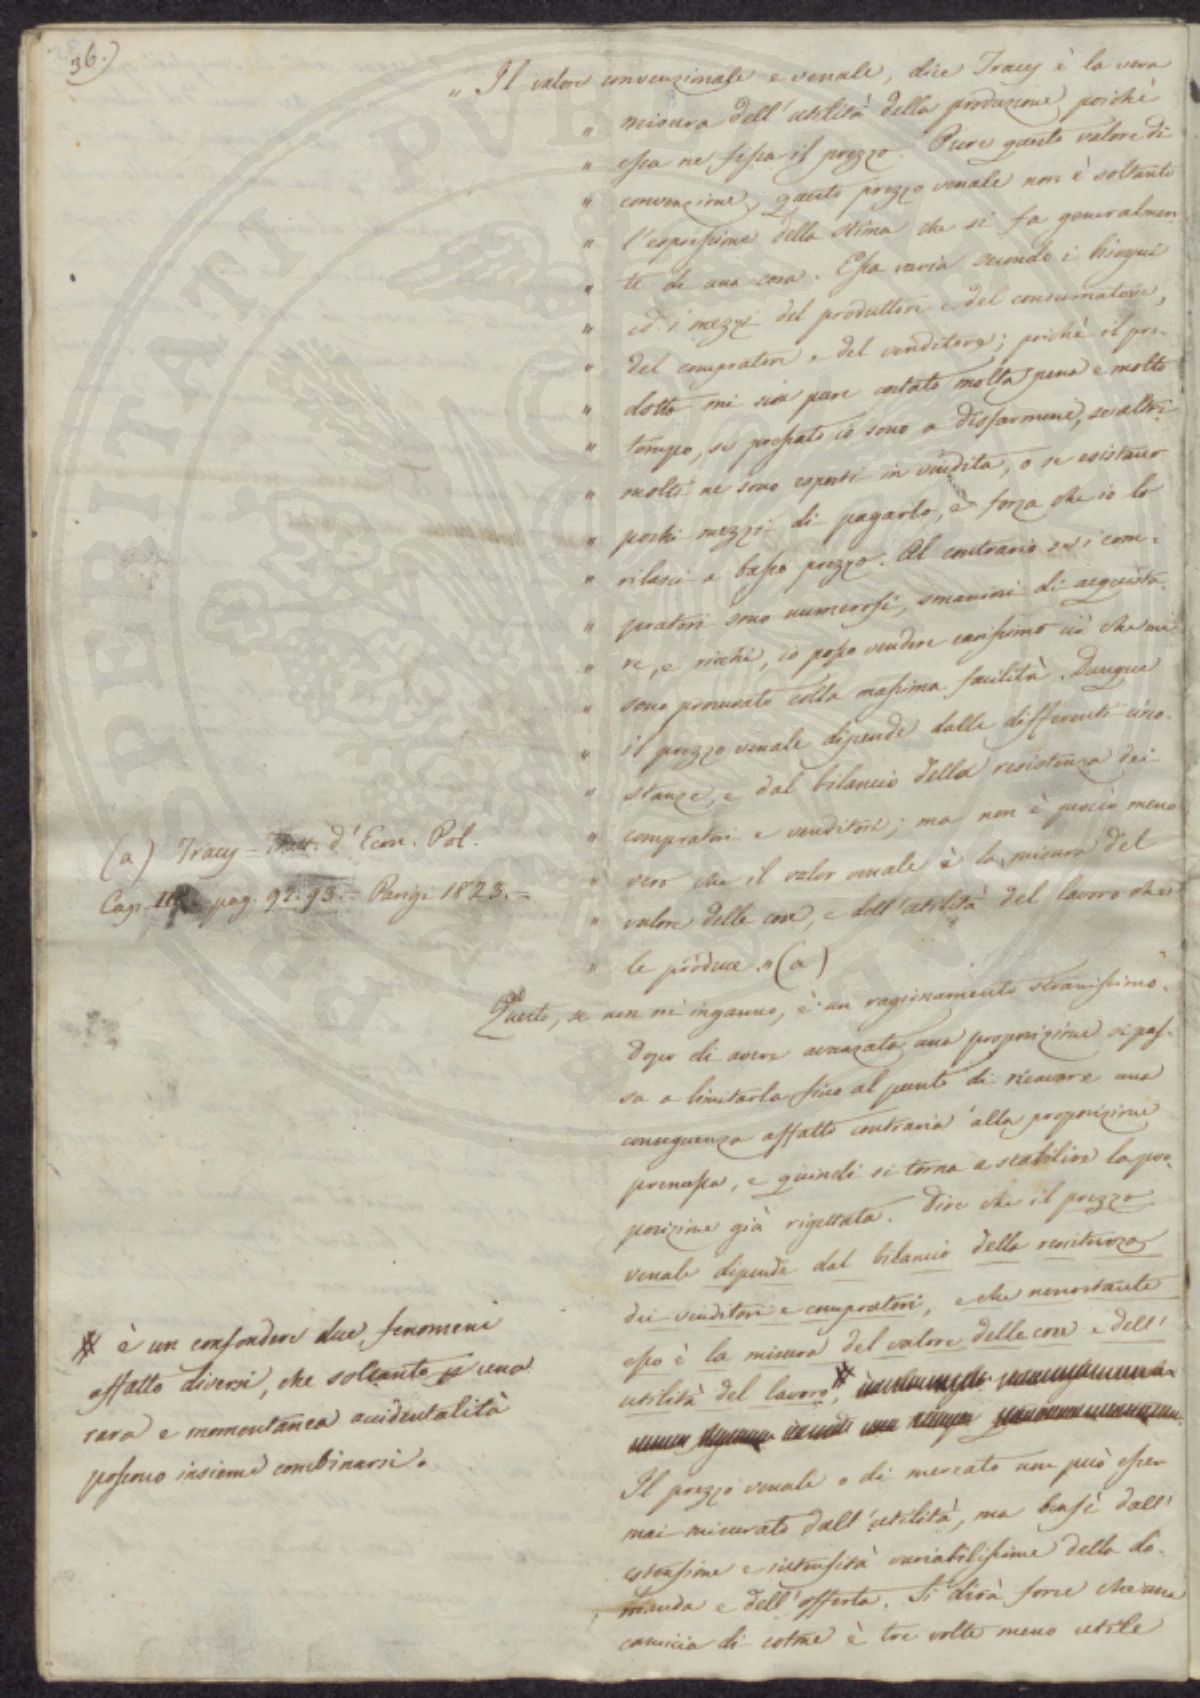 36.)
" Il valore convenzionale e venale, dice Tracy è la vera
" misura dell'utilità della produzione, poichè
" essa ne fissa il prezzo. Pure questo valore di
" convenzione, questo prezzo venale non è soltanto
" l'espressione della stima che si fa generalmen
" te di una cosa. Essa varia secondo i bisogni
" ed i mezzi del produttore e del consumatore,
" del compratore e del venditore; poichè il pro-
" dotto mi sia pure costato molta pena e molto
" tempo, se pressato io sono a disfarmene, se altri
" molti ne sono esposti in vendita, o se esistano
" pochi mezzi di pagarlo, è forza che io lo
" rilasci a basso prezzo. Al contrario se i com-
" pratori sono numerosi, smaniosi di acquista
" re, e ricchi, io posso vendere carissimo ciò che mi
" sono procurato colla massima facilità. Dunque
" il prezzo venale dipende dalle differenti circo-
" stanze, e dal bilancio della resistenza dei
" compratori e venditori; ma non è perciò meno
" vero che il valor venale è la misura del
" valore delle cose, e dell'utilità del lavoro che
" le produce. " (a)
(a) Tracy = Tratt. d'Econ. Pol.
Cap. III. pag. 92. 93. = Parigi 1823. =
Questo, se non m'inganno, è un ragionamento stranissimo.
Dopo di avere avanzata una proposizione si pas-
sa a limitarla fino al punto di ricavare una
conseguenza affatto contraria alla proposizione
premessa, e quindi si torna a stabilire la pro
posizione già rigettata. Dire che il prezzo
venale dipende dal bilancio della resistenza
dei venditori e compratori, e che nonostante
esso è la misura del valore delle cose e dell'
utilità del lavoro, #
# è un confondere due fenomeni
affatto diversi, che soltanto p una
rara e momentanea accidentalità
possono insieme combinarsi.
Il prezzo venale o di mercato non può esser
mai misurato dall'utilità, ma bensì dall'
estensione e intensità variabilissime della do-
manda e dell'offerta. Si dirà forse che una
camicia di cotone è tre volte meno utile